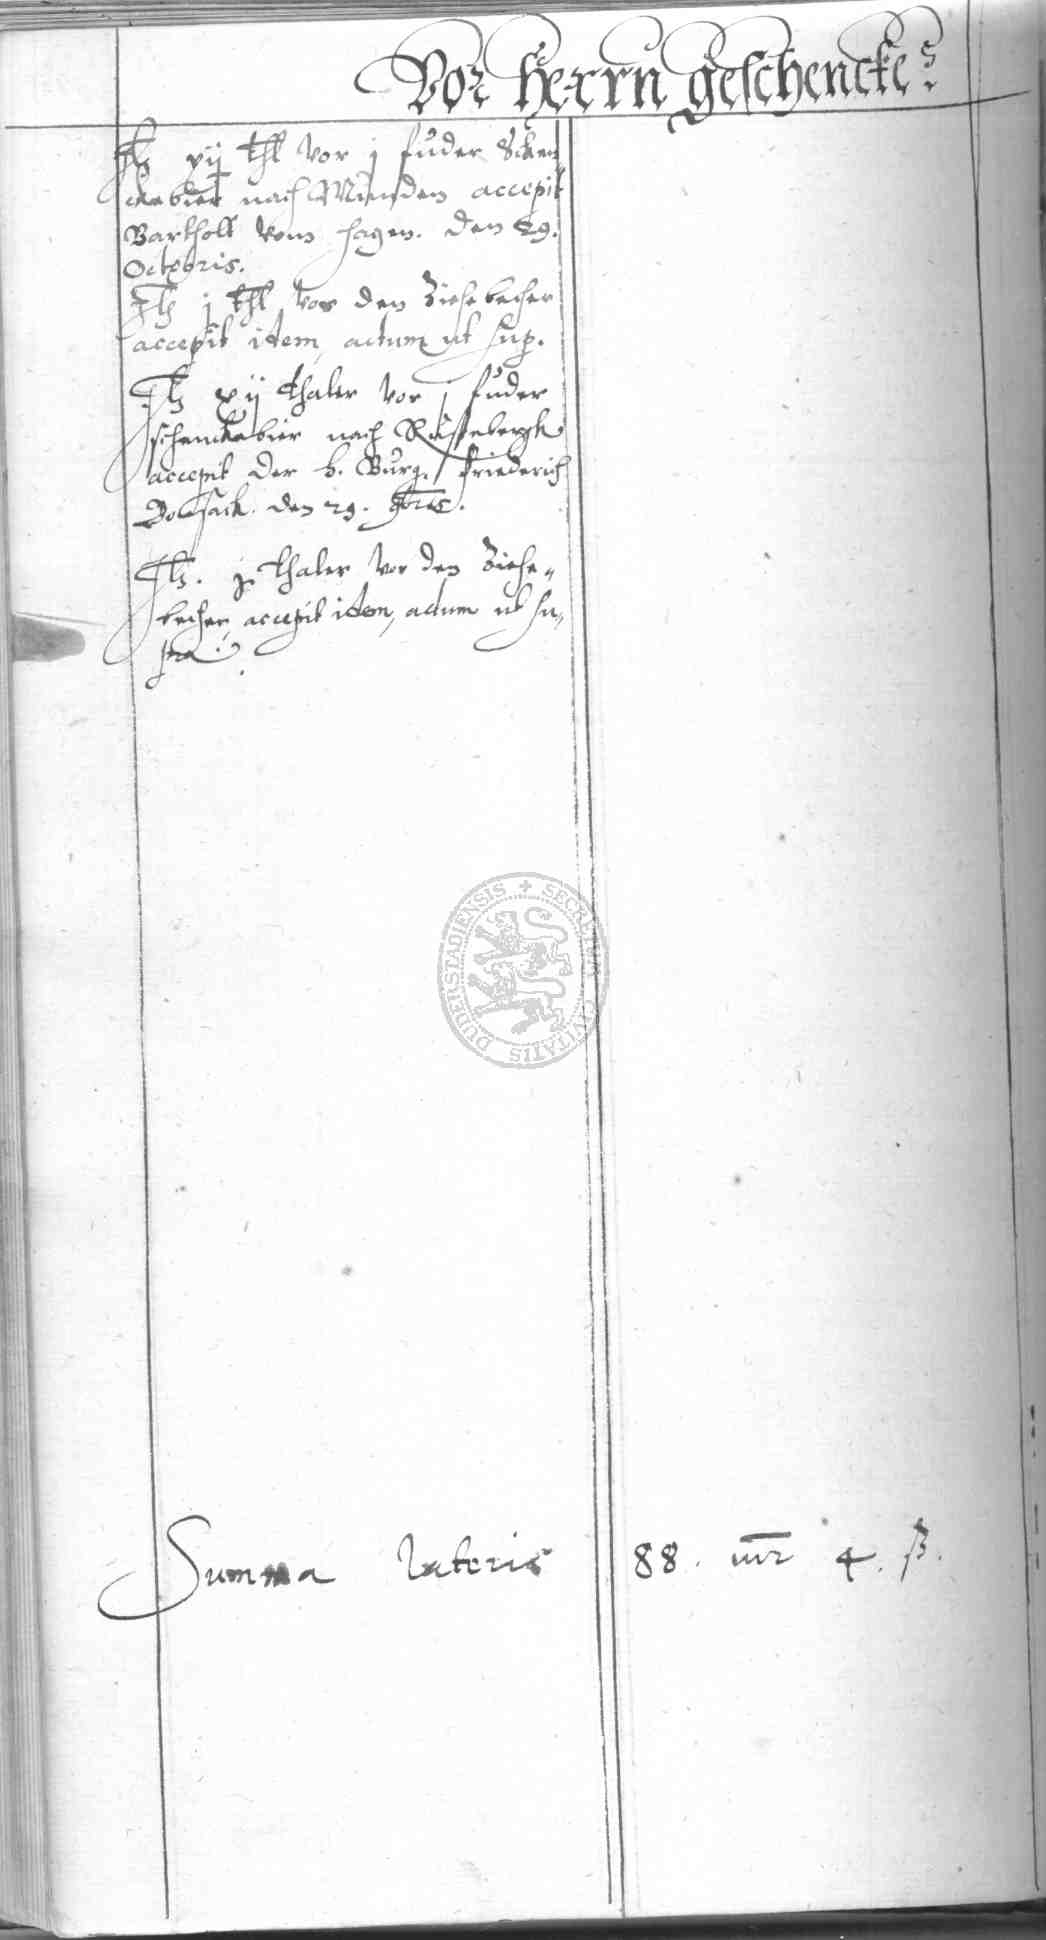 Vor Herrn geschencke:
It xij thl vor j fuder Schen
ckebier nach Münden accepit
Bartholt vom Hagen. den 29.
Octobris.
It j thl vor den Ziesebecher
accepit item, actum ut sup.
It xij thaler vor j fuder
schenckebier nach Rustebergk
accepit der h. Burg. Friederich
den 29. 9bris.
It. j thaler vor den Ziese-
becher, accepit item, actum ut su-
pra.
Summa lateris 88. mr 4. ß.
SECRETUM CIVITATIS DUDERSTADIENSIS